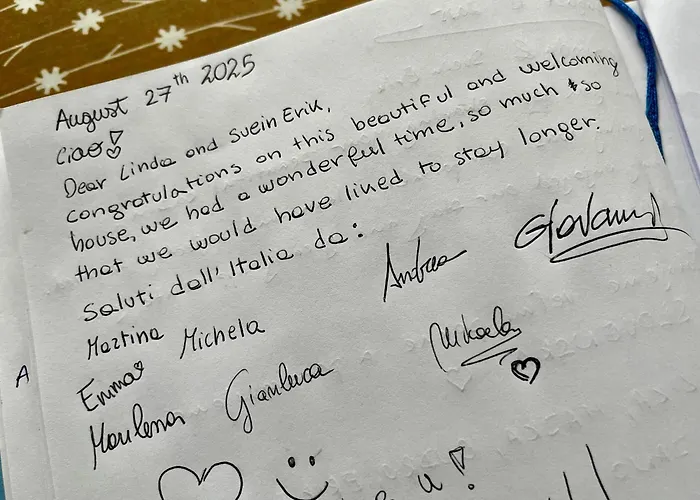 August 27th 2025
Ciao!
Dear Linda and Svein Erik,
congratulations on this beautiful and welcoming
house, we had a wonderful time, so much so
that we would have liked to stay longer.
Saluti dall'Italia da:
Andrea Giovanni
Martina Michela
Emma Mikaela
Marilena Gianluca
A
u!